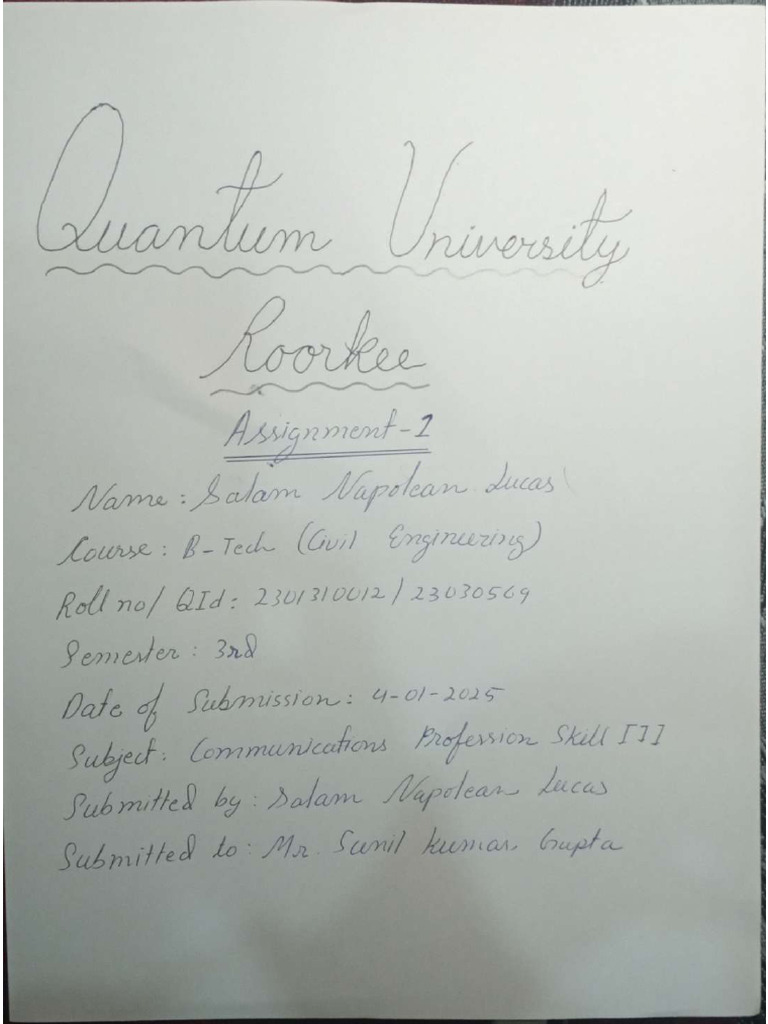 Quantum University
Roorkee
Assignment-1
Name: Salam Napolean Lucas
Course: B-Tech (Civil Engineering)
Roll no/ QId: 2301310012/23030569
Semester: 3rd
Date of Submission: 4-01-2025
Subject: Communications Profession Skill III
Submitted by: Salam Napolean Lucas
Submitted to: Mr. Sunil Kumar Gupta